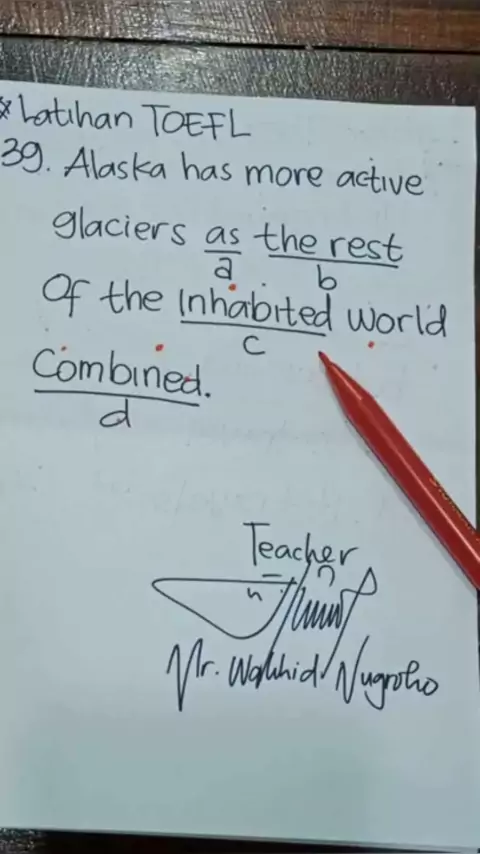 * Latihan TOEFL
39. Alaska has more active
glaciers as the rest
a b
Of the inhabited world
c
Combined.
d
Teacher
Mr. Wakhid Nugroho